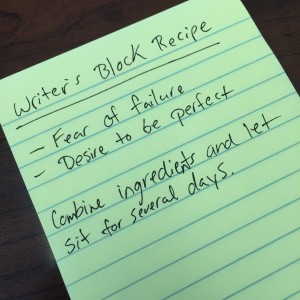 Writer's Block Recipe
- Fear of failure
- Desire to be perfect
Combine ingredients and let
sit for several days.